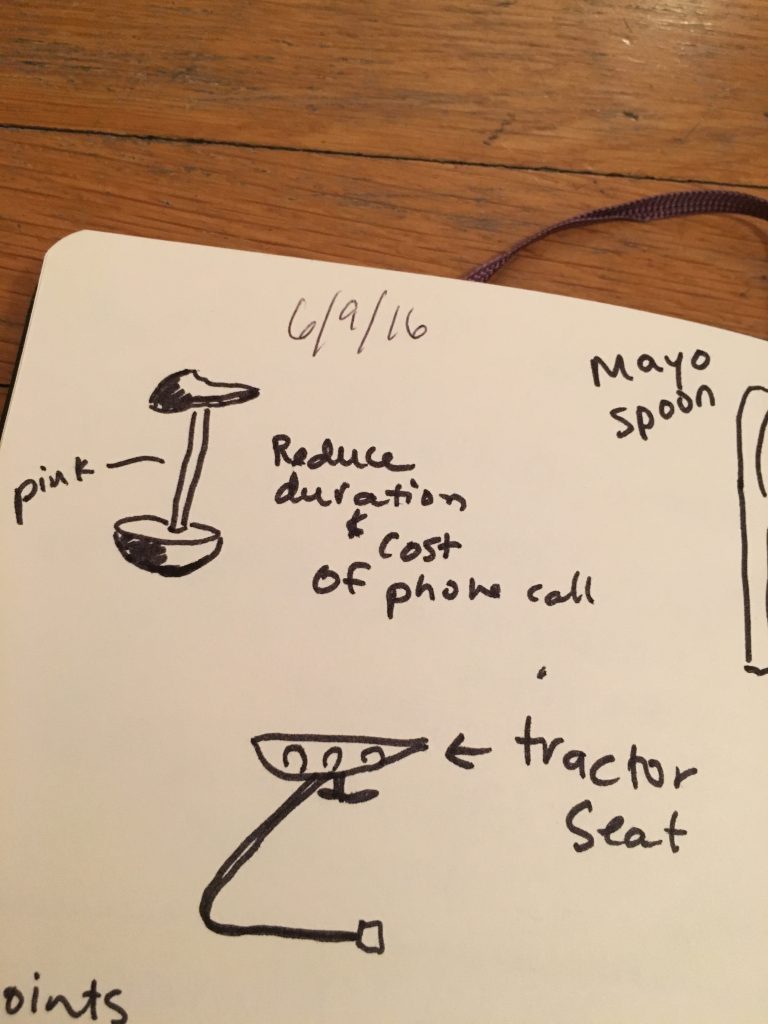 6/9/16
Mayo
spoon
pink
Reduce
duration
&
cost
of phone call
tractor
Seat
oints